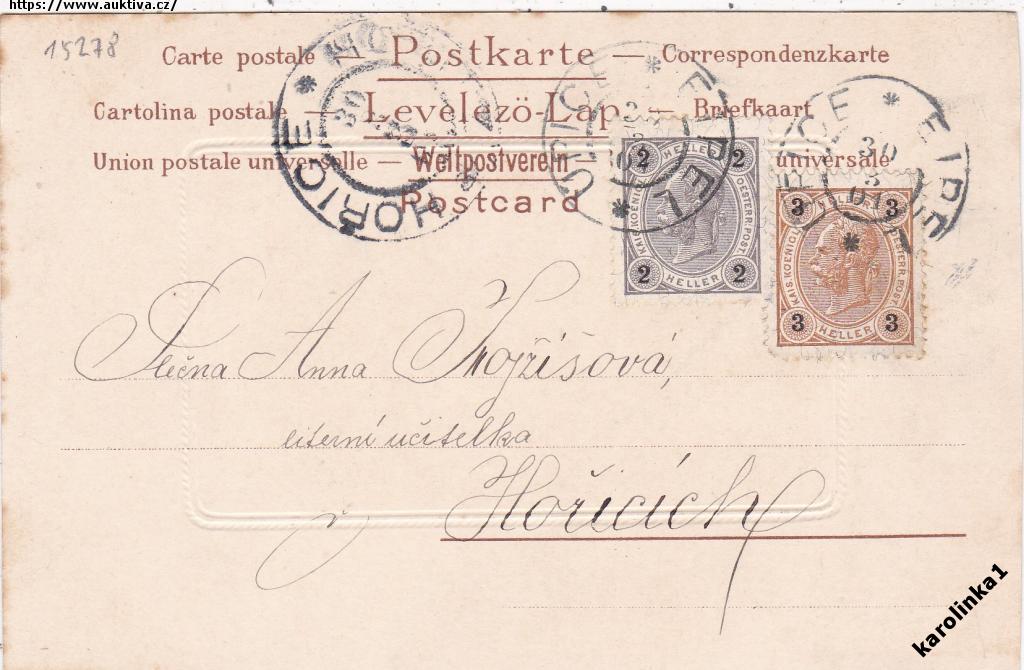 https://www.auktiva.cz/
15278
Carte postale — Postkarte — Correspondenzkarte
Cartolina postale — Levelezö-Lap — Briefkaart
Union postale universelle — Weltpostverein universale
Postcard
HORIC E
30
30
3
2 HELLER 2
KAIS. KOENIGL. OESTERR. POST
2 HELLER 2
3 HELLER 3
KAIS. KOENIGL. OESTERR. POST
3 HELLER 3
Slečna Anna
učitelka
v Hořicích
karolinka1